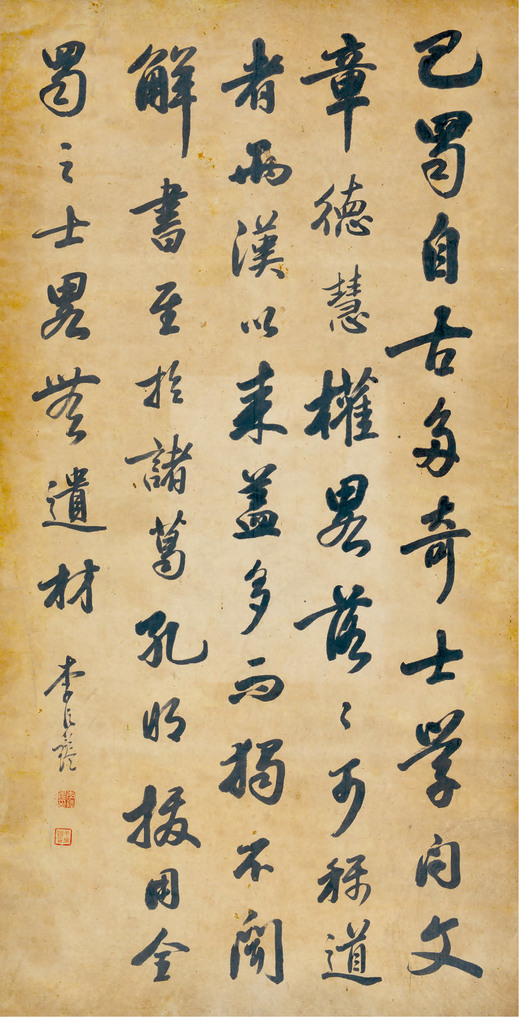 巴蜀自古多奇士學問文
章德慧權畧落々可稱道
者兩漢以來蓋多而獨不聞
解書至於諸葛孔明拔用全
蜀之士畧無遺材
李